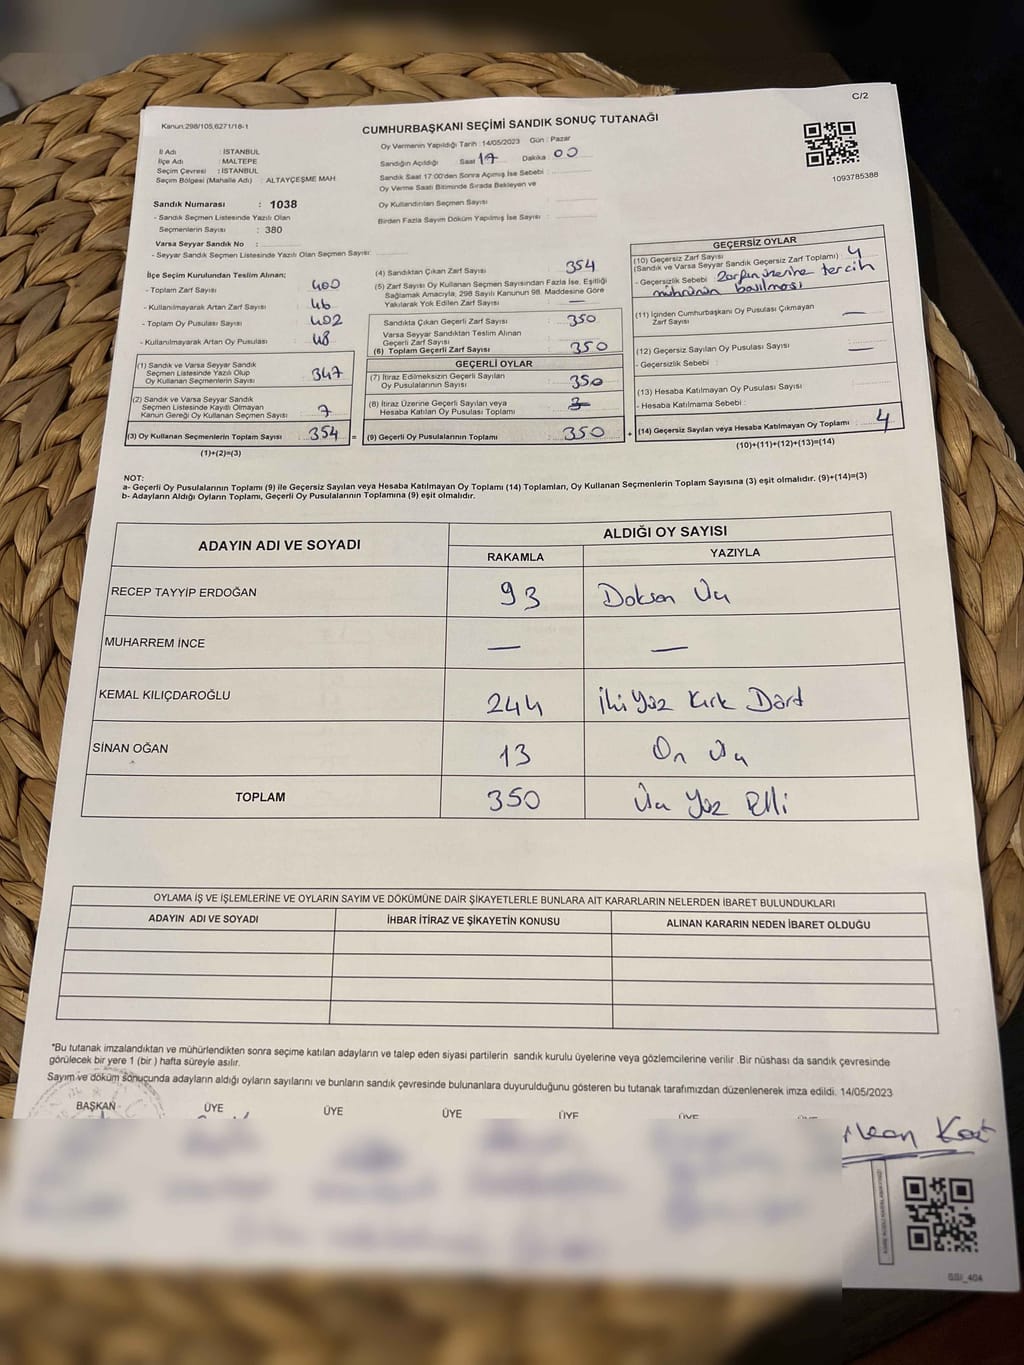 C/2
Kanun:298/105,6271/18-1
CUMHURBAŞKANI SEÇİMİ SANDIK SONUÇ TUTANAĞI
İl Adı : İSTANBUL
İlçe Adı : MALTEPE
Seçim Çevresi : İSTANBUL
Seçim Bölgesi (Mahalle Adı) : ALTAYÇEŞME MAH
Oy Vermenin Yapıldığı Tarih :14/05/2023 Gün : Pazar
Sandığın Açıldığı Saat 17 Dakika : 00
Sandık Saat 17:00'den Sonra Açılmış İse Sebebi :
Oy Verme Saati Bitiminde Sırada Bekleyen ve
Oy Kullandırılan Seçmen Sayısı :
Birden Fazla Sayım Döküm Yapılmış İse Sayısı :
1093785388
Sandık Numarası : 1038
- Sandık Seçmen Listesinde Yazılı Olan
Seçmenlerin Sayısı : 380
Varsa Seyyar Sandık No :
- Seyyar Sandık Seçmen Listesinde Yazılı Olan Seçmen Sayısı:
İlçe Seçim Kurulundan Teslim Alınan;
- Toplam Zarf Sayısı : 400
- Kullanılmayarak Artan Zarf Sayısı : 46
- Toplam Oy Pusulası Sayısı : 402
- Kullanılmayarak Artan Oy Pusulası : 48
(1) Sandık ve Varsa Seyyar Sandık
Seçmen Listesinde Yazılı Olup
Oy Kullanan Seçmenlerin Sayısı : 347
(2) Sandık ve Varsa Seyyar Sandık
Seçmen Listesinde Kayıtlı Olmayan
Kanun Gereği Oy Kullanan Seçmen Sayısı : 7
(3) Oy Kullanan Seçmenlerin Toplam Sayısı : 354 =
(1)+(2)=(3)
(4) Sandıktan Çıkan Zarf Sayısı : 354
(5) Zarf Sayısı Oy Kullanan Seçmen Sayısından Fazla İse, Eşitliği
Sağlamak Amacıyla; 298 Sayılı Kanunun 98. Maddesine Göre
Yakılarak Yok Edilen Zarf Sayısı : —
Sandıkta Çıkan Geçerli Zarf Sayısı : 350
Varsa Seyyar Sandıktan Teslim Alınan
Geçerli Zarf Sayısı :
(6) Toplam Geçerli Zarf Sayısı : 350
GEÇERLİ OYLAR
(7) İtiraz Edilmeksizin Geçerli Sayılan
Oy Pusulalarının Sayısı : 350
(8) İtiraz Üzerine Geçerli Sayılan veya
Hesaba Katılan Oy Pusulası Toplamı :
(9) Geçerli Oy Pusulalarının Toplamı : 350 +
GEÇERSİZ OYLAR
(10) Geçersiz Zarf Sayısı
(Sandık ve Varsa Seyyar Sandık Geçersiz Zarf Toplamı) : 4
- Geçersizlik Sebebi : Zarfın üzerine tercih
mührünün basılması
(11) İçinden Cumhurbaşkanı Oy Pusulası Çıkmayan
Zarf Sayısı : —
(12) Geçersiz Sayılan Oy Pusulası Sayısı : —
- Geçersizlik Sebebi :
(13) Hesaba Katılmayan Oy Pusulası Sayısı :
- Hesaba Katılmama Sebebi :
(14) Geçersiz Sayılan veya Hesaba Katılmayan Oy Toplamı : 4
(10)+(11)+(12)+(13)=(14)
NOT:
a- Geçerli Oy Pusulalarının Toplamı (9) ile Geçersiz Sayılan veya Hesaba Katılmayan Oy Toplamı (14) Toplamları, Oy Kullanan Seçmenlerin Toplam Sayısına (3) eşit olmalıdır. (9)+(14)=(3)
b- Adayların Aldığı Oyların Toplamı, Geçerli Oy Pusulalarının Toplamına (9) eşit olmalıdır.
ADAYIN ADI VE SOYADI
ALDIĞI OY SAYISI
RAKAMLA YAZIYLA
RECEP TAYYİP ERDOĞAN 93 Doksan Üç
MUHARREM İNCE — —
KEMAL KILIÇDAROĞLU 244 İki Yüz Kırk Dört
SİNAN OĞAN 13 On Üç
TOPLAM 350 Üç Yüz Elli
OYLAMA İŞ VE İŞLEMLERİNE VE OYLARIN SAYIM VE DÖKÜMÜNE DAİR ŞİKAYETLERLE BUNLARA AİT KARARLARIN NELERDEN İBARET BULUNDUKLARI
ADAYIN ADI VE SOYADI İHBAR İTİRAZ VE ŞİKAYETİN KONUSU ALINAN KARARIN NEDEN İBARET OLDUĞU
*Bu tutanak imzalandıktan ve mühürlendikten sonra seçime katılan adayların ve talep eden siyasi partilerin sandık kurulu üyelerine veya gözlemcilerine verilir .Bir nüshası da sandık çevresinde
görülecek bir yere 1 (bir ) hafta süreyle asılır.
Sayım ve döküm sonucunda adayların aldığı oyların sayılarını ve bunların sandık çevresinde bulunanlara duyurulduğunu gösteren bu tutanak tarafımızdan düzenlenerek imza edildi. 14/05/2023
BAŞKAN ÜYE ÜYE ÜYE ÜYE ÜYE ÜYE